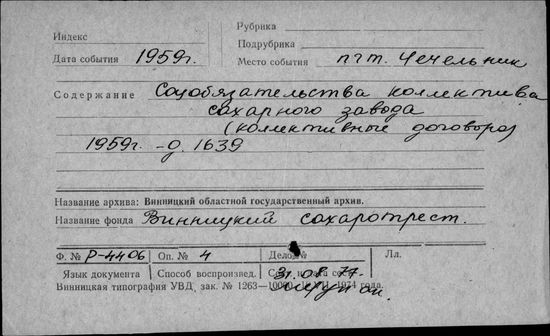 Индекс
Рубрика
Подрубрика
Дата события 1959г. Место события пгт. Чечельник
Содержание Соцобязательства коллектива
сахарного завода
(коллективные договора)
1959г. – д. 1639
Название архива: Винницкий областной государственный архив.
Название фонда Винницкий сахаротрест.
Ф. № Р-4406 Оп. № 4 Дело № Лл.
Язык документа Способ воспроизвед. 31.08.77.
Винницкая типография УВД, зак. № 1263—10000 1974 года.